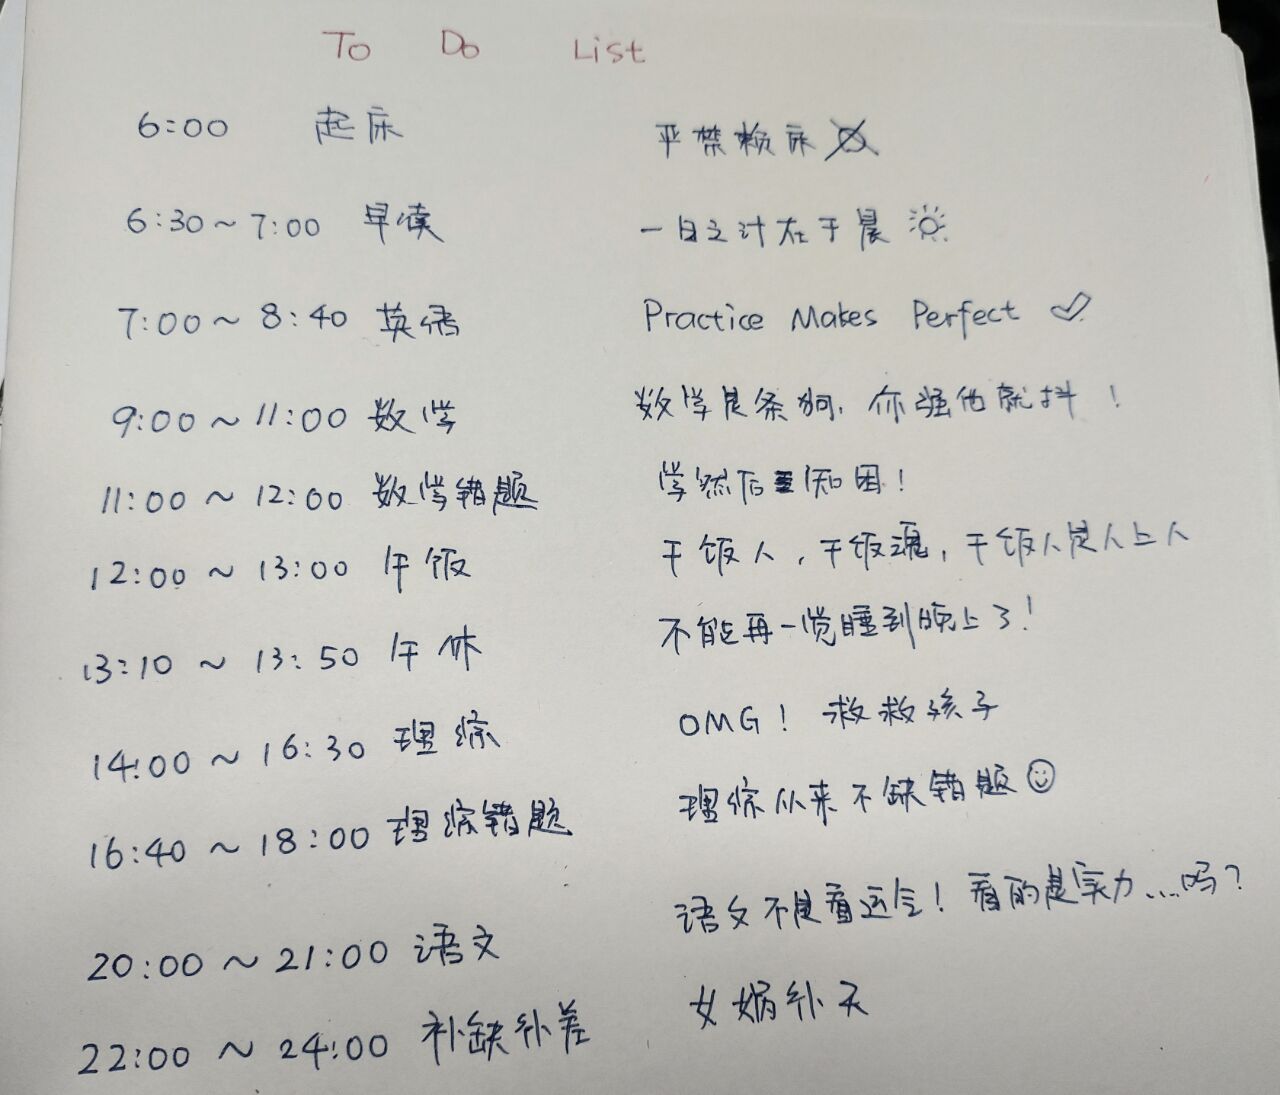 To Do List
6:00 起床 严禁赖床
6:30~7:00 早读 一日之计在于晨
7:00~8:40 英语 Practice Makes Perfect
9:00~11:00 数学 数学是条狗，你强他就抖！
11:00~12:00 数学错题 学然后知困！
12:00~13:00 午饭 干饭人，干饭魂，干饭人是人上人
13:10~13:50 午休 不能再一觉睡到晚上了！
14:00~16:30 理综 OMG！救救孩子
16:40~18:00 理综错题 理综从来不缺错题
20:00~21:00 语文 语文不是看运气！看的是实力....吗？
22:00~24:00 补缺补差 女娲补天